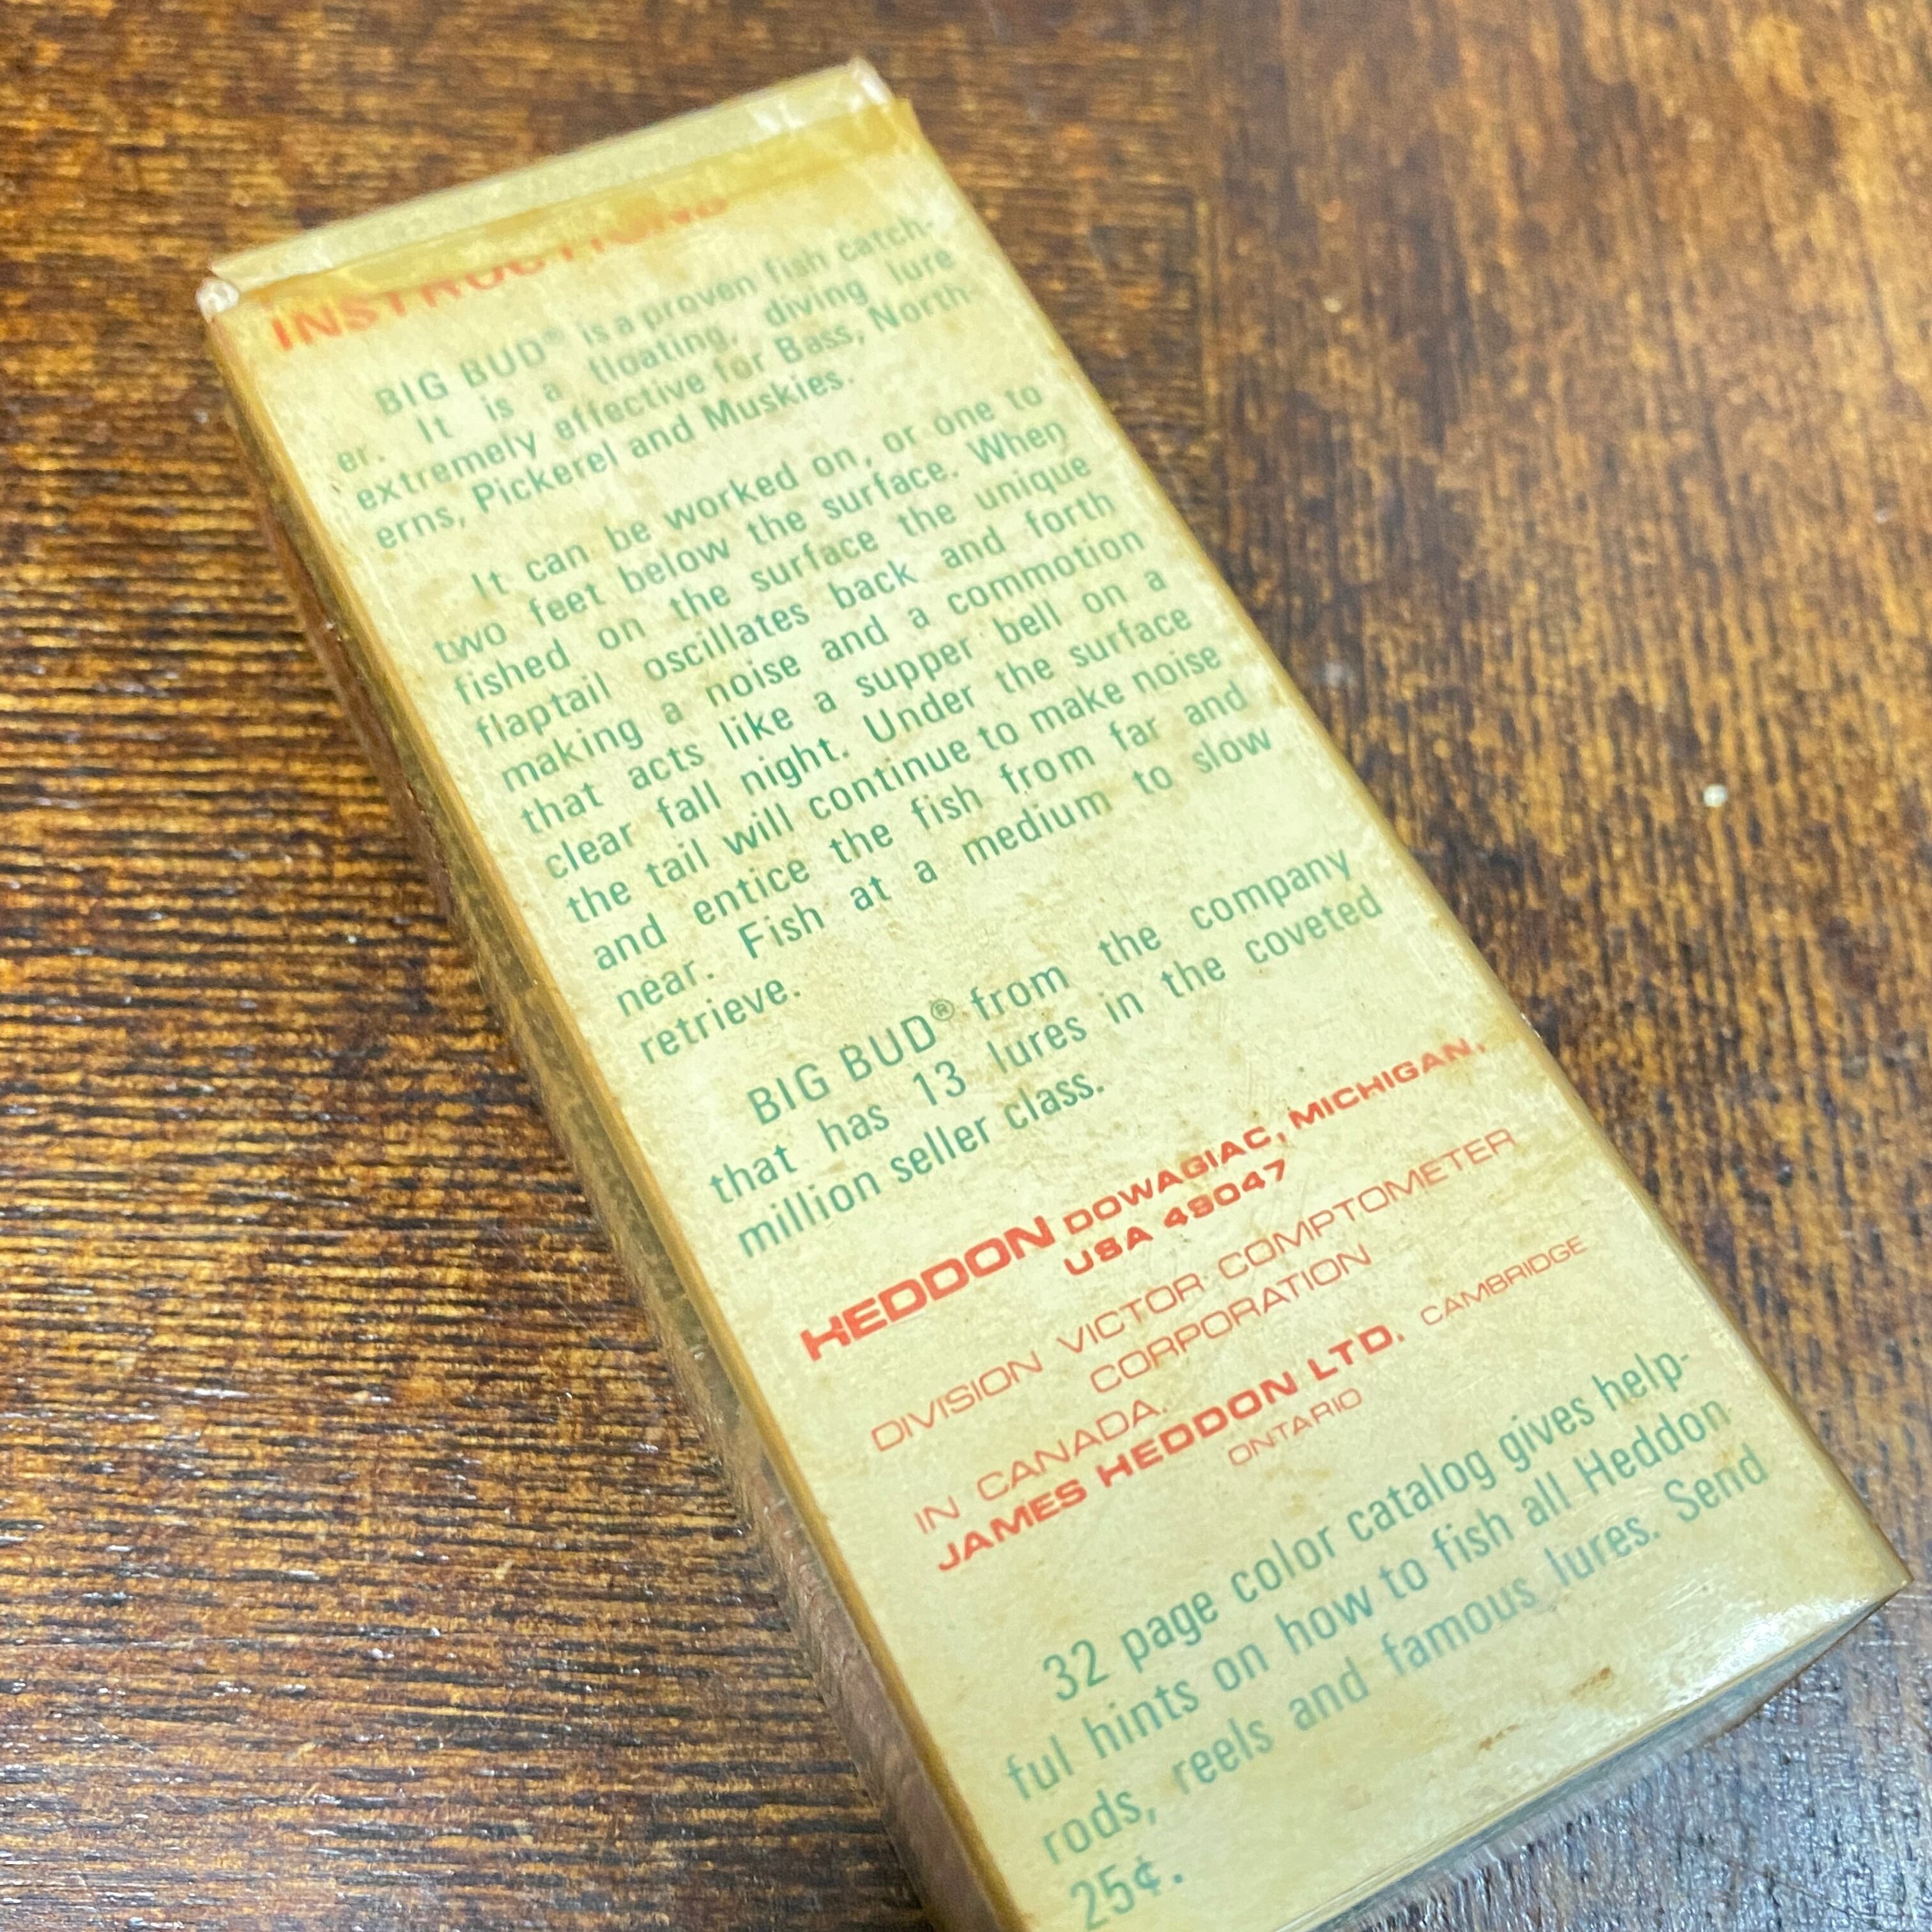 INSTRUCTIONS
BIG BUD® is a proven fish catch-
er. It is a floating, diving lure
extremely effective for Bass, North-
erns, Pickerel and Muskies.
It can be worked on, or one to
two feet below the surface. When
fished on the surface the unique
flaptail oscillates back and forth
making a noise and a commotion
that acts like a supper bell on a
clear fall night. Under the surface
the tail will continue to make noise
and entice the fish from far and
near. Fish at a medium to slow
retrieve.
BIG BUD® from the company
that has 13 lures in the coveted
million seller class.
HEDDON DOWAGIAC, MICHIGAN,
USA 49047
DIVISION VICTOR COMPTOMETER
CORPORATION
IN CANADA,
JAMES HEDDON LTD. CAMBRIDGE
ONTARIO
32 page color catalog gives help-
ful hints on how to fish all Heddon
rods, reels and famous lures. Send
25¢.